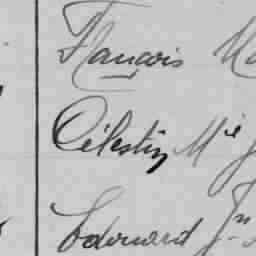 François
Célestin M^ie
Edouard J^n